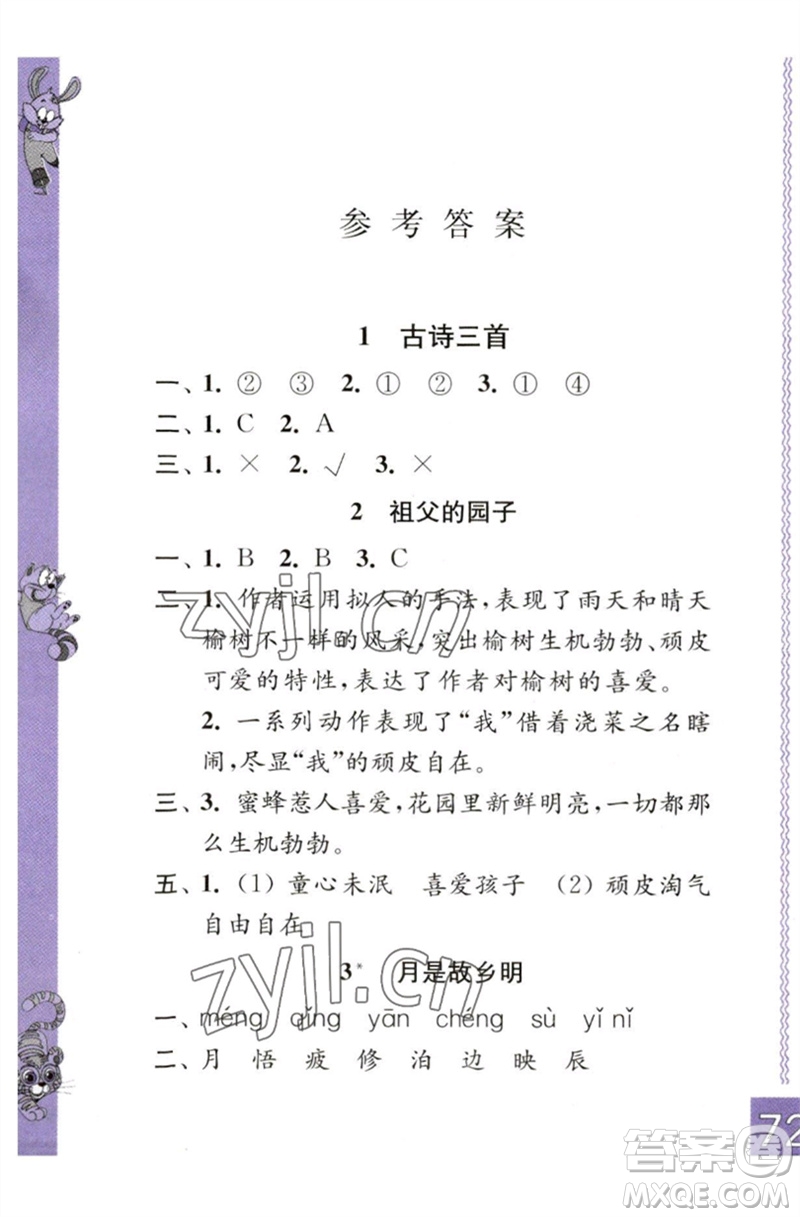 参考答案
1 古诗三首
一、1. ② ③ 2. ① ② 3. ① ④
二、1. C 2. A
三、1. × 2. √ 3. ×
2 祖父的园子
一、1. B 2. B 3. C
二、1. 作者运用拟人的手法，表现了雨天和晴天
榆树不一样的风采，突出榆树生机勃勃、顽皮
可爱的特性，表达了作者对榆树的喜爱。
2. 一系列动作表现了“我”借着浇菜之名瞎
闹，尽显“我”的顽皮自在。
三、3. 蜜蜂惹人喜爱，花园里新鲜明亮，一切都那
么生机勃勃。
五、1.（1）童心未泯 喜爱孩子 （2）顽皮淘气
自由自在
3* 月是故乡明
一、méng qǐng yān chéng sù yǐ nǐ
二、月 悟 疲 修 泊 边 映 辰
72
zyjl.cn
zyjl.cn
答案圈
MXQE.COM